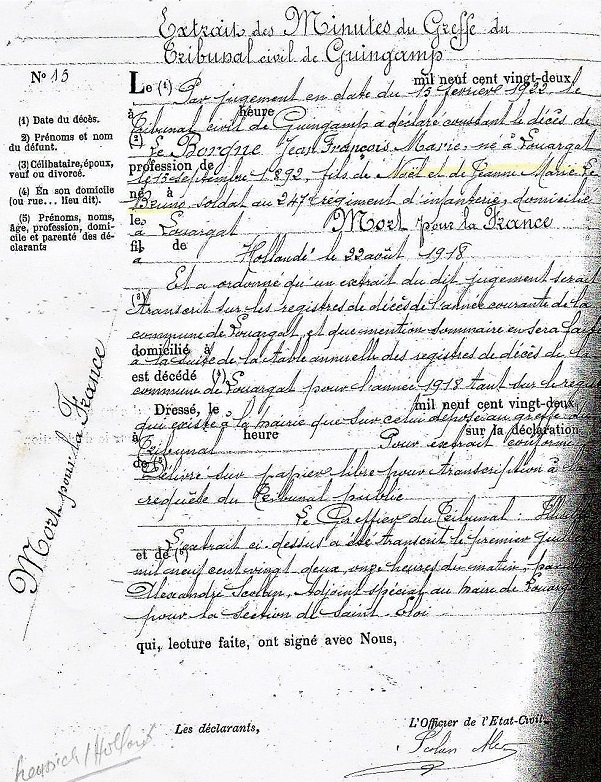 Extrait des Minutes du Greffe du
Tribunal civil de Guingamp
N° 15
(1) Date du décès.
2) Prénoms et nom
du défunt.
(3) Célibataire, époux,
veuf ou divorcé.
(4) En son domicile
(ou rue... lieu dit).
(5) Prénoms, noms,
âge, profession, domi-
cile et parenté des dé-
clarants
Mort pour la France
Le (1) mil neuf cent vingt-deux
Par jugement en date du 15 février 1922 le
à heure
Tribunal civil de Guingamp a déclaré constant le décès de
(2)
Le Borgne Jean François Marie né à Louargat
profession de
le 15 septembre 1892, fils de Noël et de Jeanne Marie Le
né à
Bruno soldat au 247e régiment d'infanterie, domicilié
le
à Louargat Mort pour la France
fil de
a le 22 août 1918
Et a ordonné qu'un extrait du dit jugement serait
(3)
transcrit sur les registres de décès de l'année courante de la
commune de Louargat, et que mention sommaire en sera faite
domicilié à
à la suite de la table annuelle des registres de décès de la
est décédé (4)
commune de Louargat pour l'année 1918 tant sur le
Dressé, le mil neuf cent vingt-deux
qui existe à la mairie que sur celui déposé au greffe
à heure sur la déclaration
Tribunal Pour extrait conforme
de (5)
Délivré sur papier libre pour transcription à
requête du Tribunal public
Le Greffier du Tribunal.
L'extrait ci-dessus a été transcrit le premier
et de (5)
mil neuf cent vingt deux, onze heures du matin, par
Alexandre Scolan, Adjoint spécial au maire de Louargat
pour la section de Saint-Eloi
qui, lecture faite, ont signé avec Nous,
Les déclarants,
L'Officier de l'Etat-Civil,
Scolan